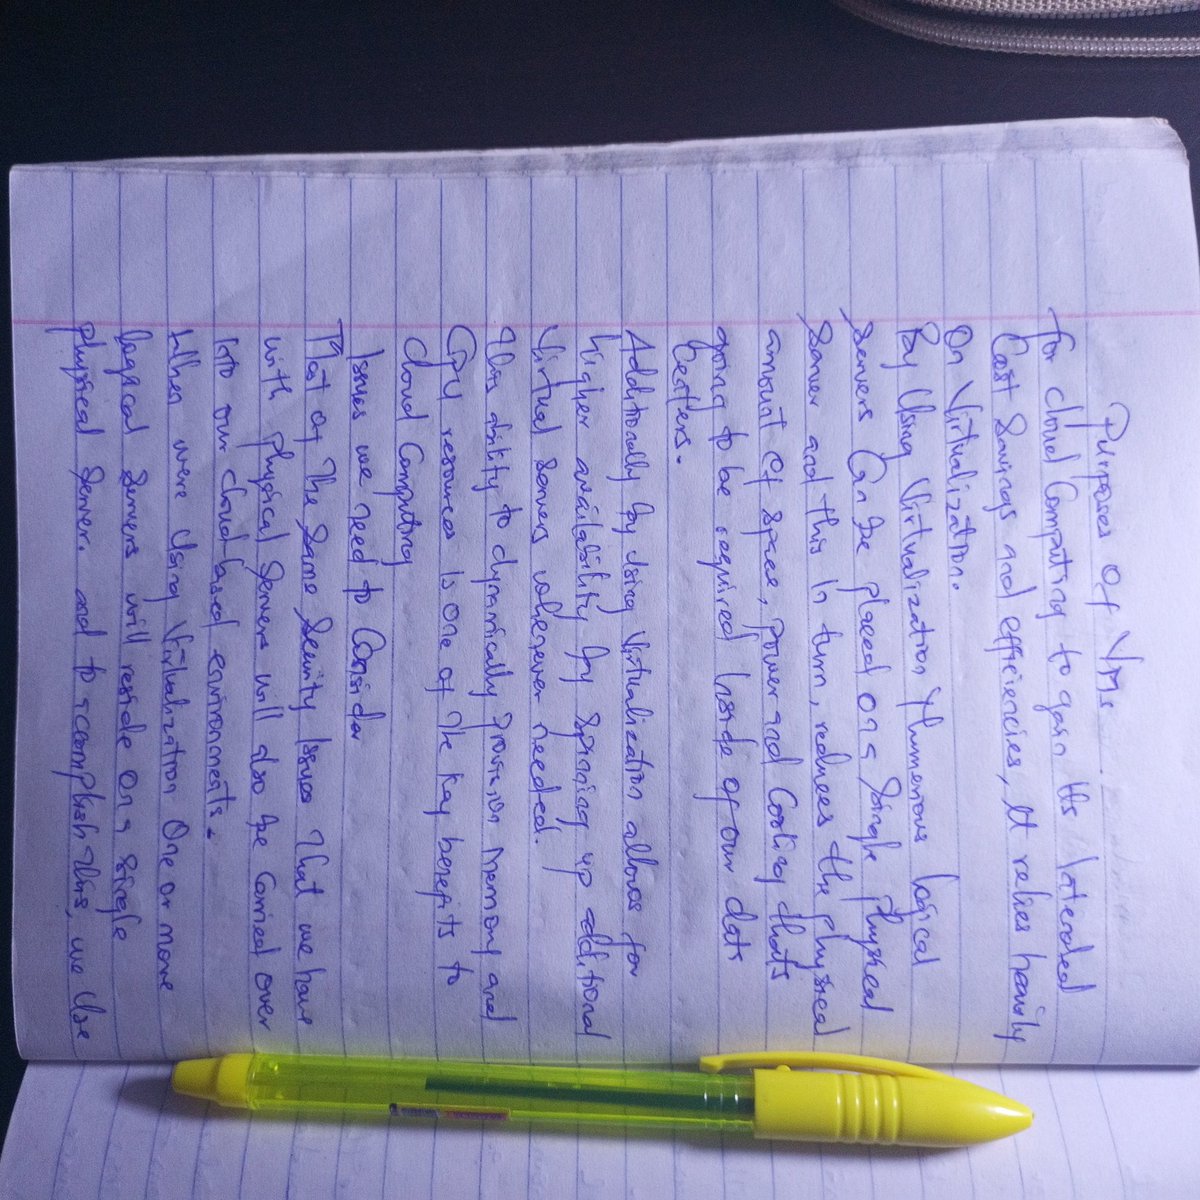 Purposes Of VMs
for cloud Computing to gain its intended
Cost Savings and efficiencies, it relies heavily
On Virtualization.
By Using Virtualization Numerous logical
Servers Can be placed on a Single Physical
Server and this in turn, reduces the physical
amount of space, power and Cooling thats
going to be required Inside of our data
Centers.
Additionally by using Virtualization allows for
higher availability by spinning up additional
Virtual Servers whenever needed.
This ability to dynamically provision memory and
CPU resources is one of the Key benefits to
cloud Computing
Issues we need to Consider
Most of The Same Security Issues That we have
with physical Servers will also be Carried over
Into our cloud-based environments.
When were Using Virtualization One or more
logical Servers will reside On a Single
physical Server. and to accomplish this, we Use